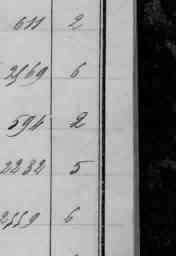 611 2
2569 6
594 2
2282 5
2559 6